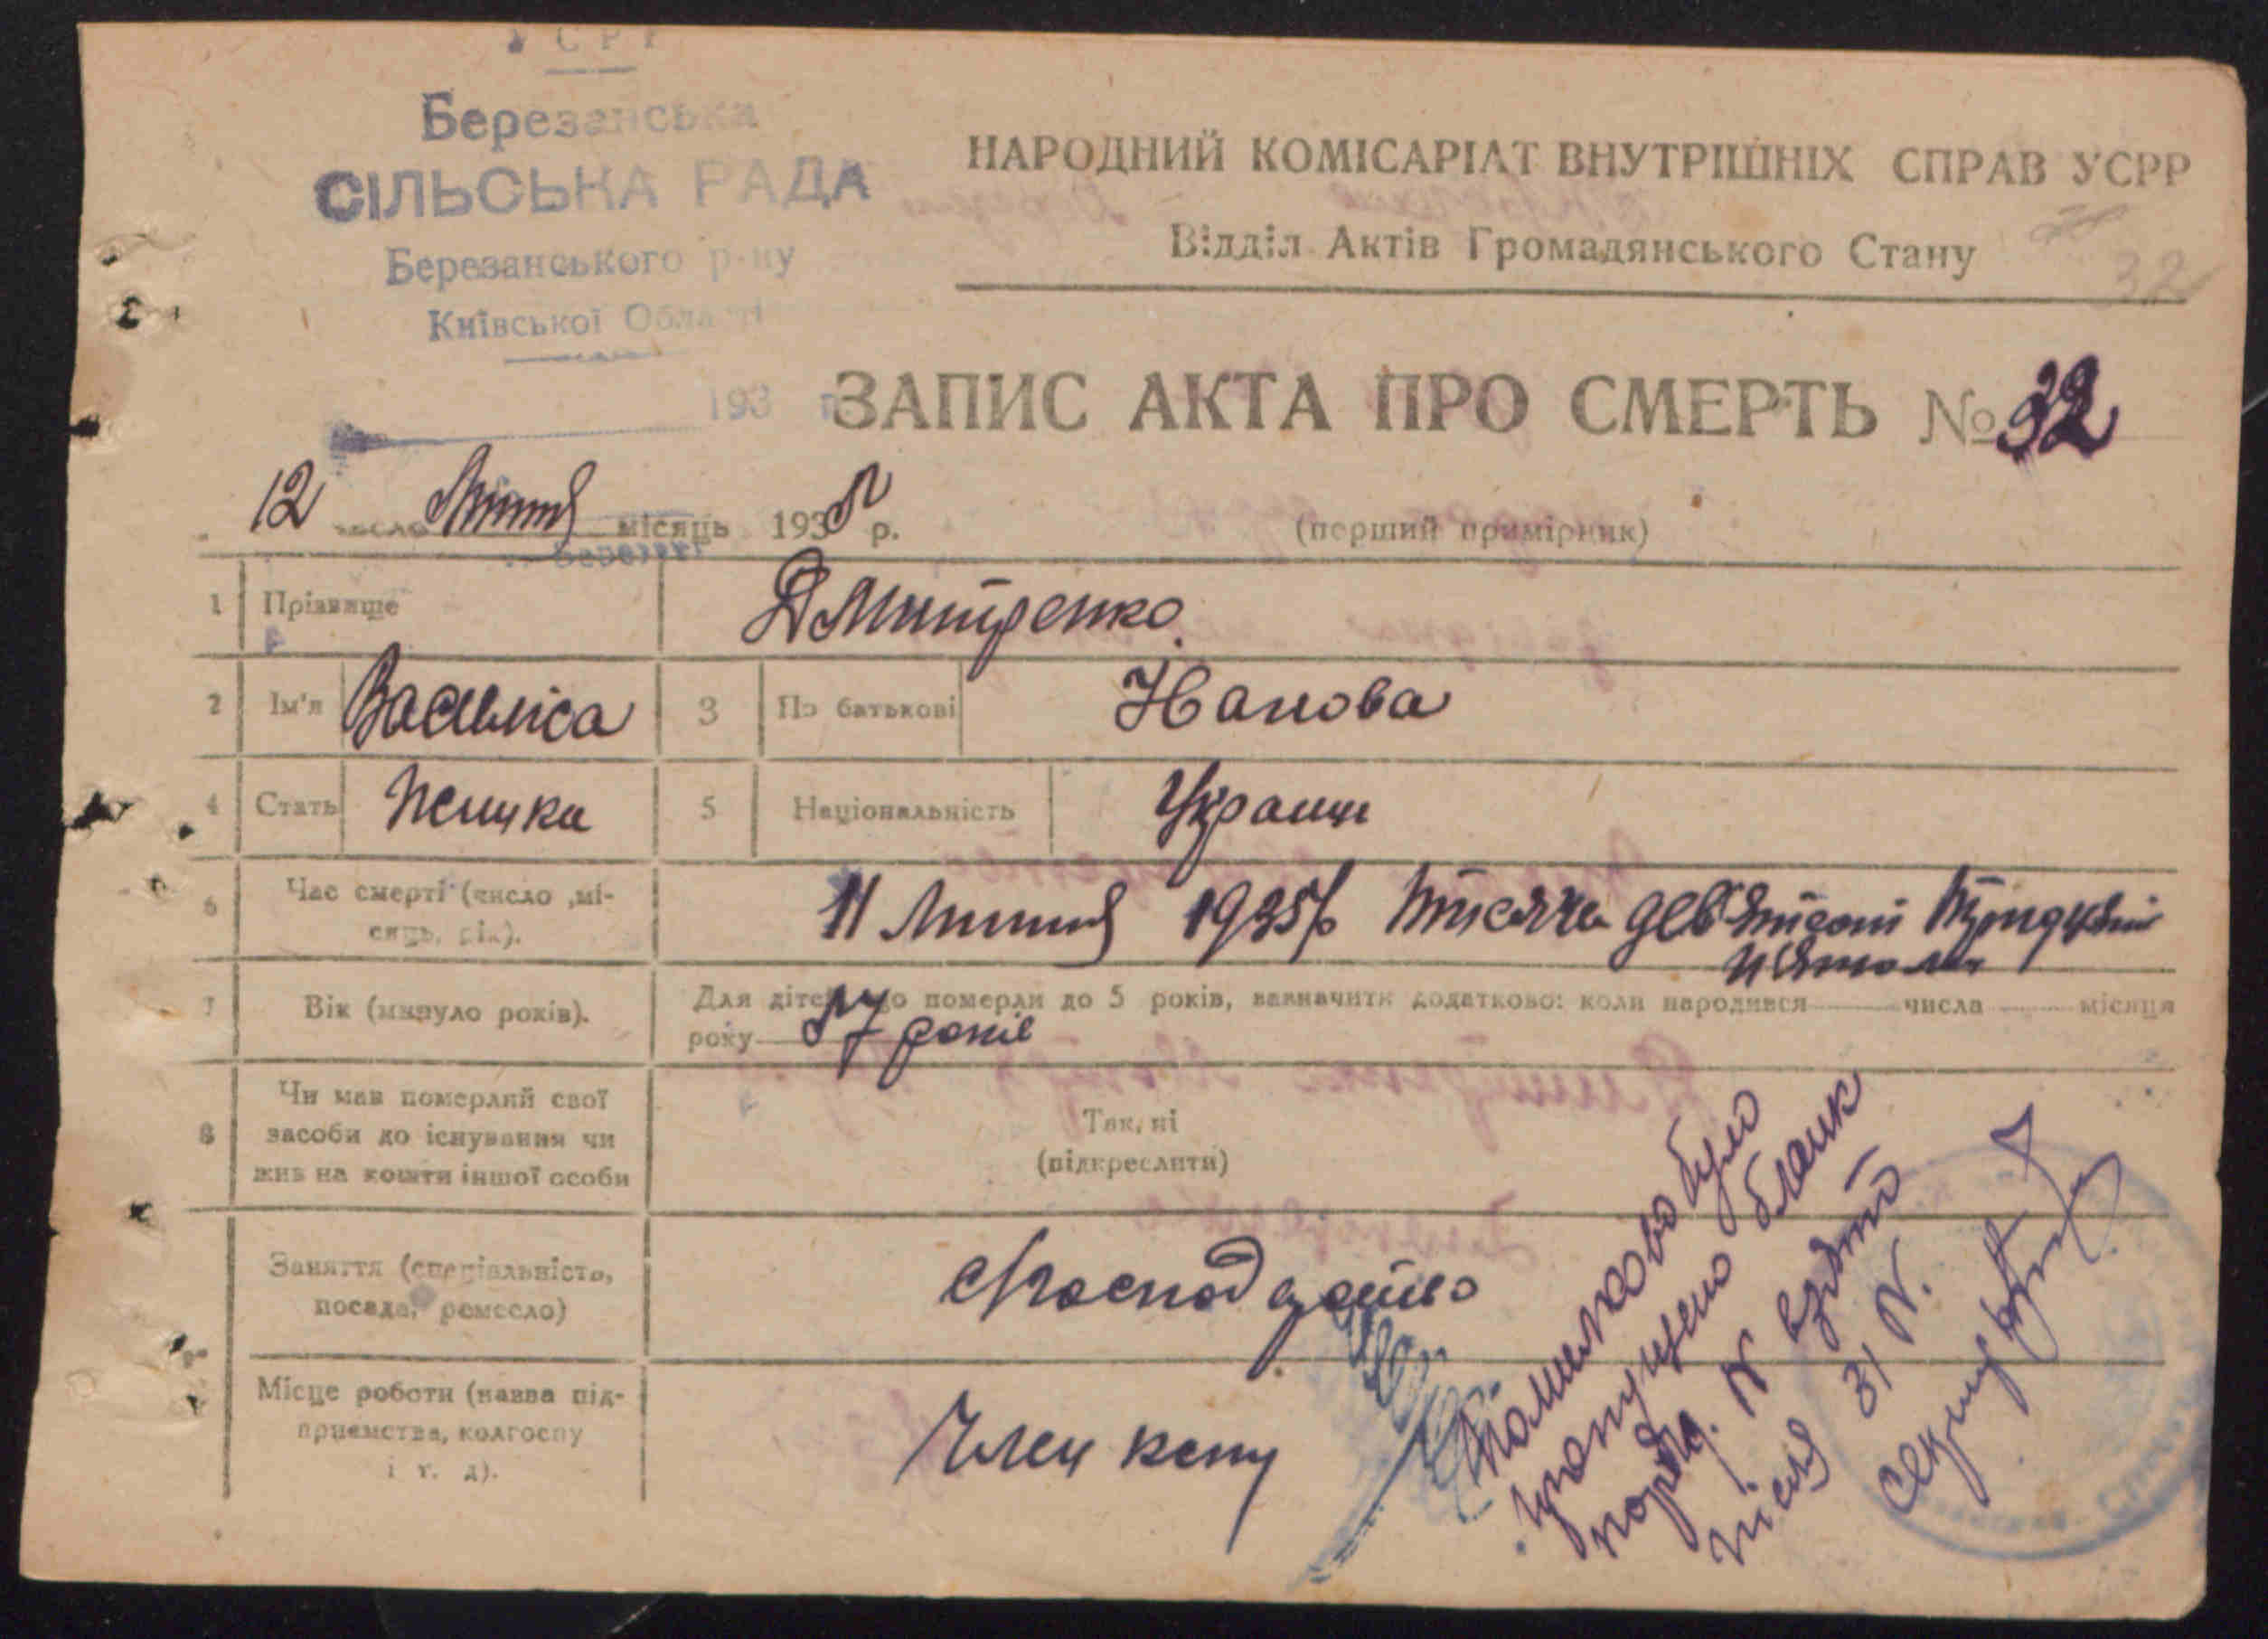 УСРР
Березанська
СІЛЬСЬКА РАДА
Березанського р-ну
Київської Області
193
НАРОДНИЙ КОМІСАРІАТ ВНУТРІШНІХ СПРАВ УСРР
Відділ Актів Громадянського Стану
32
ЗАПИС АКТА ПРО СМЕРТЬ № 32
12 число Липня місяць 1935 р.
(перший примірник)
1 Прізвище Дмитренко
2 Ім'я Василіса 3 По батькові
4 Стать Жінка 5 Національність Украин
6 Час смерті (число, мі-
сяць, рік).
11 Липня 1935р Тисяча девятсот тридцять
пятого
7 Вік (минуло років).
Для дітей, що померли до 5 років, зазначити додатково: коли народився числа місяця
року 57 років
8 Чи мав померлий свої
засоби до існування чи
жив на кошти іншої особи
Так, ні
(підкреслити)
Заняття (спеціальність,
посада, ремесло)
Місце роботи (назва під-
приємства, колгоспу
і т. д).
Член
Помилково було
пропущено бланк
поряд. N взято
після 31 N.